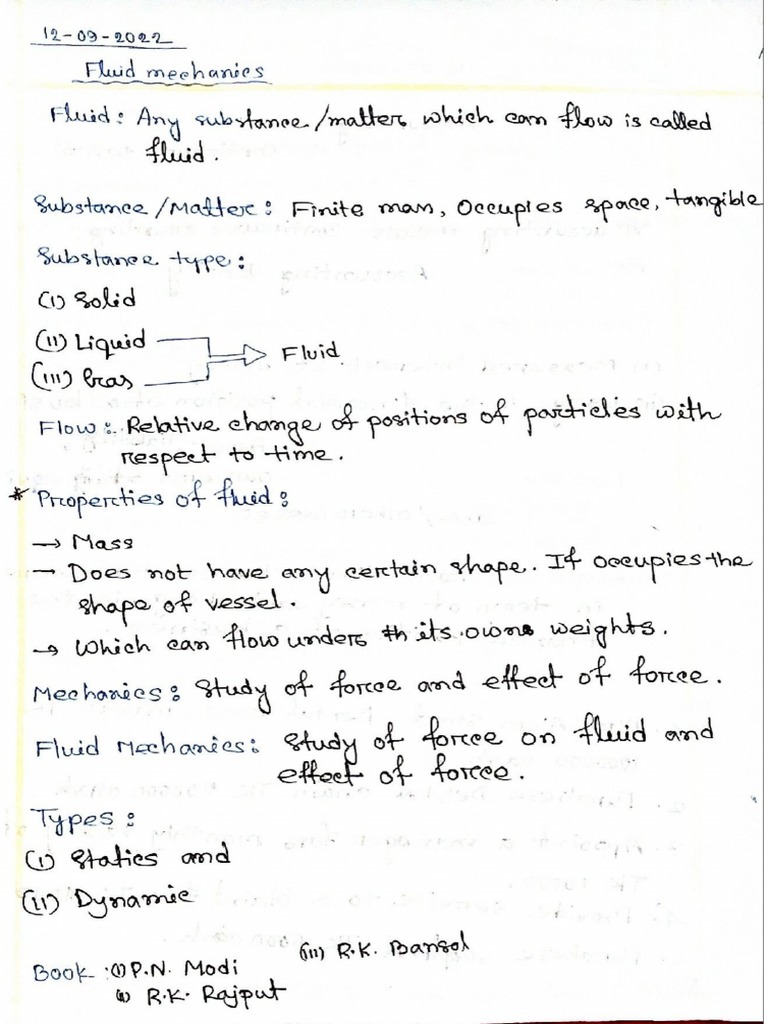 12-09-2022
Fluid mechanics
Fluid: Any substance/matter which can flow is called
fluid.
Substance/Matter: Finite mass, Occupies space, tangible
Substance type:
(I) Solid
(II) Liquid
Fluid
(III) Gas
Flow: Relative change of positions of particles with
respect to time.
* Properties of fluid:
→ Mass
→ Does not have any certain shape. It occupies the
shape of vessel.
→ Which can flow under its own weights.
Mechanics: Study of force and effect of force.
Fluid Mechanics: Study of force on fluid and
effect of force.
Types:
(I) Statics and
(II) Dynamic
Book: (I) P.N. Modi
(II) R.K. Rajput
(III) R.K. Bansal